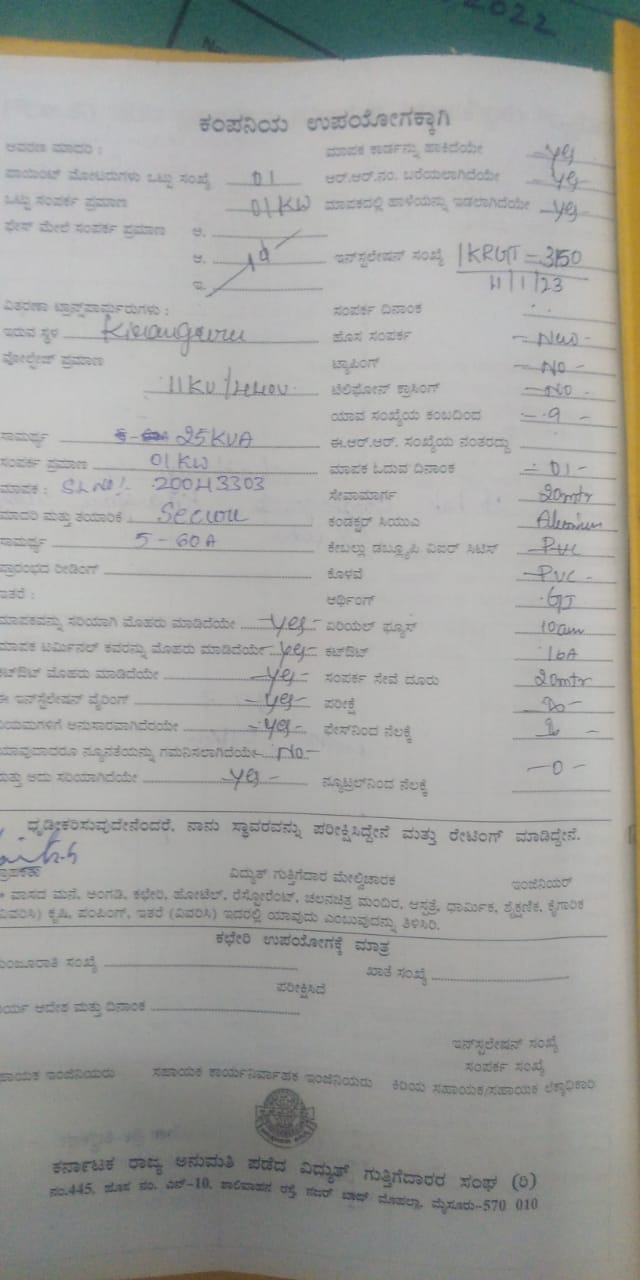 2022
ಕಂಪನಿಯ ಉಪಯೋಗಕ್ಕಾಗಿ
ಆವರಣ ಮಾದರಿ : ಮಾಪಕ ಕಾರ್ಡನ್ನು ಹಾಕಿದೆಯೇ Yes
ಪಾಯಿಂಟ್ ಮೋಟರುಗಳು ಒಟ್ಟು ಸಂಖ್ಯೆ 01 ಆರ್.ಆರ್.ನಂ. ಬರೆಯಲಾಗಿದೆಯೇ Yes
ಒಟ್ಟು ಸಂಪರ್ಕ ಪ್ರಮಾಣ 01 KW ಮಾಪಕದಲ್ಲಿ ಹಾಳೆಯನ್ನು ಇಡಲಾಗಿದೆಯೇ Yes
ಫೇಸ್ ಮೇಲೆ ಸಂಪರ್ಕ ಪ್ರಮಾಣ ಅ.
ಆ. ಇನ್‌ಸ್ಟಲೇಷನ್ ಸಂಖ್ಯೆ KRGT - 3150
ಇ. 11/1/23
ವಿತರಣಾ ಟ್ರಾನ್ಸ್‌ಫಾರ್ಮರುಗಳು : ಸಂಪರ್ಕ ದಿನಾಂಕ
ಇರುವ ಸ್ಥಳ ಹೊಸ ಸಂಪರ್ಕ - New -
ವೋಲ್ಟೇಜ್ ಪ್ರಮಾಣ ಟ್ಯಾಪಿಂಗ್ - No -
11KV / ಟೆಲಿಫೋನ್ ಕ್ರಾಸಿಂಗ್ - No -
ಯಾವ ಸಂಖ್ಯೆಯ ಕಂಬದಿಂದ - 9 -
ಸಾಮರ್ಥ್ಯ 25 KVA ಈ.ಆರ್.ಆರ್. ಸಂಖ್ಯೆಯ ನಂತರದ್ದು
ಸಂಪರ್ಕ ಪ್ರಮಾಣ 01 KW ಮಾಪಕ ಓದುವ ದಿನಾಂಕ - 01 -
ಮಾಪಕ : SL No! 20043303 ಸೇವಾಮಾರ್ಗ 20 mtr
ಮಾದರಿ ಮತ್ತು ತಯಾರಿಕೆ Secure ಕಂಡಕ್ಟರ್ ಸಿಯುಎ
ಸಾಮರ್ಥ್ಯ 5 - 60 A ಕೇಬಲ್ಲು ಡಬ್ಲ್ಯೂಪಿ ವಿಐರ್ ಸಿಟಿಸ್ PVC
ಪ್ರಾರಂಭದ ರೀಡಿಂಗ್ ಕೊಳವೆ PVC -
ಇತರೆ : ಅರ್ಥಿಂಗ್ GI
ಮಾಪಕವನ್ನು ಸರಿಯಾಗಿ ಮೊಹರು ಮಾಡಿದೆಯೇ - Yes - ಏರಿಯಲ್ ಫ್ಯೂಸ್ 10am
ಮಾಪಕ ಟರ್ಮಿನಲ್ ಕವರನ್ನು ಮೊಹರು ಮಾಡಿದೆಯೇ - Yes - ಕಟ್‌ಔಟ್ 16A
ಕಟ್‌ಔಟ್ ಮೊಹರು ಮಾಡಿದೆಯೇ - Yes - ಸಂಪರ್ಕ ಸೇವೆ ದೂರು 20 mtr
ಈ ಇನ್‌ಸ್ಟಲೇಷನ್ ವೈರಿಂಗ್ - Yes - ಪರೀಕ್ಷೆ
ನಿಯಮಗಳಿಗೆ ಅನುಸಾರವಾಗಿದೆರಯೇ - Yes - ಫೇಸ್‌ನಿಂದ ನೆಲಕ್ಕೆ
ಯಾವುದಾದರೂ ನ್ಯೂನತೆಯನ್ನು ಗಮನಿಸಲಾಗಿದೆಯೇ - No -
ಮತ್ತು ಅದು ಸರಿಯಾಗಿದೆಯೇ Yes - ನ್ಯೂಟ್ರಲ್‌ನಿಂದ ನೆಲಕ್ಕೆ - 0 -
ಧೃಡೀಕರಿಸುವುದೇನೆಂದರೆ, ನಾನು ಸ್ಥಾವರವನ್ನು ಪರೀಕ್ಷಿಸಿದ್ದೇನೆ ಮತ್ತು ರೇಟಿಂಗ್ ಮಾಡಿದ್ದೇನೆ.
ವಿದ್ಯುತ್ ಗುತ್ತಿಗೆದಾರ ಮೇಲ್ವಿಚಾರಕ ಇಂಜಿನಿಯರ್
* ವಾಸದ ಮನೆ, ಅಂಗಡಿ, ಕಛೇರಿ, ಹೋಟೆಲ್, ರೆಸ್ಟೋರೆಂಟ್, ಚಲನಚಿತ್ರ ಮಂದಿರ, ಆಸ್ಪತ್ರೆ, ಧಾರ್ಮಿಕ, ಶೈಕ್ಷಣಿಕ, ಕೈಗಾರಿಕ
(ವಿವರಿಸಿ) ಕೃಷಿ, ಪಂಪಿಂಗ್, ಇತರೆ (ವಿವರಿಸಿ) ಇದರಲ್ಲಿ ಯಾವುದು ಎಂಬುವುದನ್ನು ತಿಳಿಸಿರಿ.
ಕಛೇರಿ ಉಪಯೋಗಕ್ಕೆ ಮಾತ್ರ
ಮಂಜೂರಾತಿ ಸಂಖ್ಯೆ ಖಾತೆ ಸಂಖ್ಯೆ
ಪರೀಕ್ಷಿಸಿದೆ
ಕಾರ್ಯ ಆದೇಶ ಮತ್ತು ದಿನಾಂಕ
ಇನ್‌ಸ್ಟಲೇಷನ್ ಸಂಖ್ಯೆ
ಸಂಪರ್ಕ ಸಂಖ್ಯೆ
ಸಹಾಯಕ ಇಂಜಿನಿಯರು ಸಹಾಯಕ ಕಾರ್ಯನಿರ್ವಾಹಕ ಇಂಜಿನಿಯರು ಕಿರಿಯ ಸಹಾಯಕ/ಸಹಾಯಕ ಲೆಕ್ಕಾಧಿಕಾರಿ
ಕರ್ನಾಟಕ ರಾಜ್ಯ ಅನುಮತಿ ಪಡೆದ ವಿದ್ಯುತ್ ಗುತ್ತಿಗೆದಾರರ ಸಂಘ (ರಿ)
ನಂ.445, ಹೊಸ ನಂ. ಎನ್-10, ಶಾಲಿವಾಹನ ರಸ್ತೆ, ನಜರ್ ಬಾದ್ ಮೊಹಲ್ಲಾ, ಮೈಸೂರು-570 010